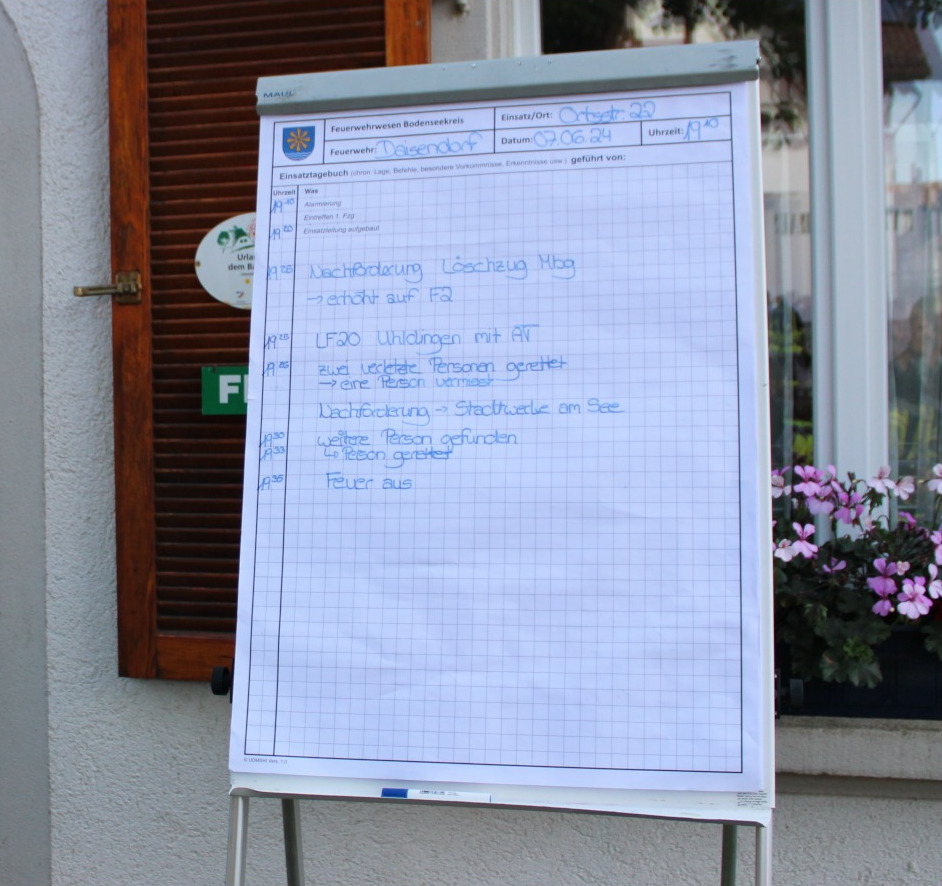 MAUL
Feuerwehrwesen Bodenseekreis
Einsatz/Ort: Ortsstr. 22
Feuerwehr: Daisendorf
Datum: 07.06.24
Uhrzeit: 19¹⁰
Einsatztagebuch (chron. Lage, Befehle, besondere Vorkommnisse, Erkenntnisse usw.) geführt von:
Uhrzeit Was
19¹⁰ Alarmierung
Eintreffen 1. Fzg
19²⁰ Einsatzleitung aufgebaut
Nachförderung Löschzug Mbg
→ erhöht auf F2
19²⁵ LF20 Uhldingen mit AT
zwei verletzte Personen gerettet
→ eine Person vermisst
Nachförderung → Stadtwerke am See
19³⁰ weitere Person gefunden
19³³ ↳ Person gerettet
19³⁵ Feuer aus
Urla
dem Ba